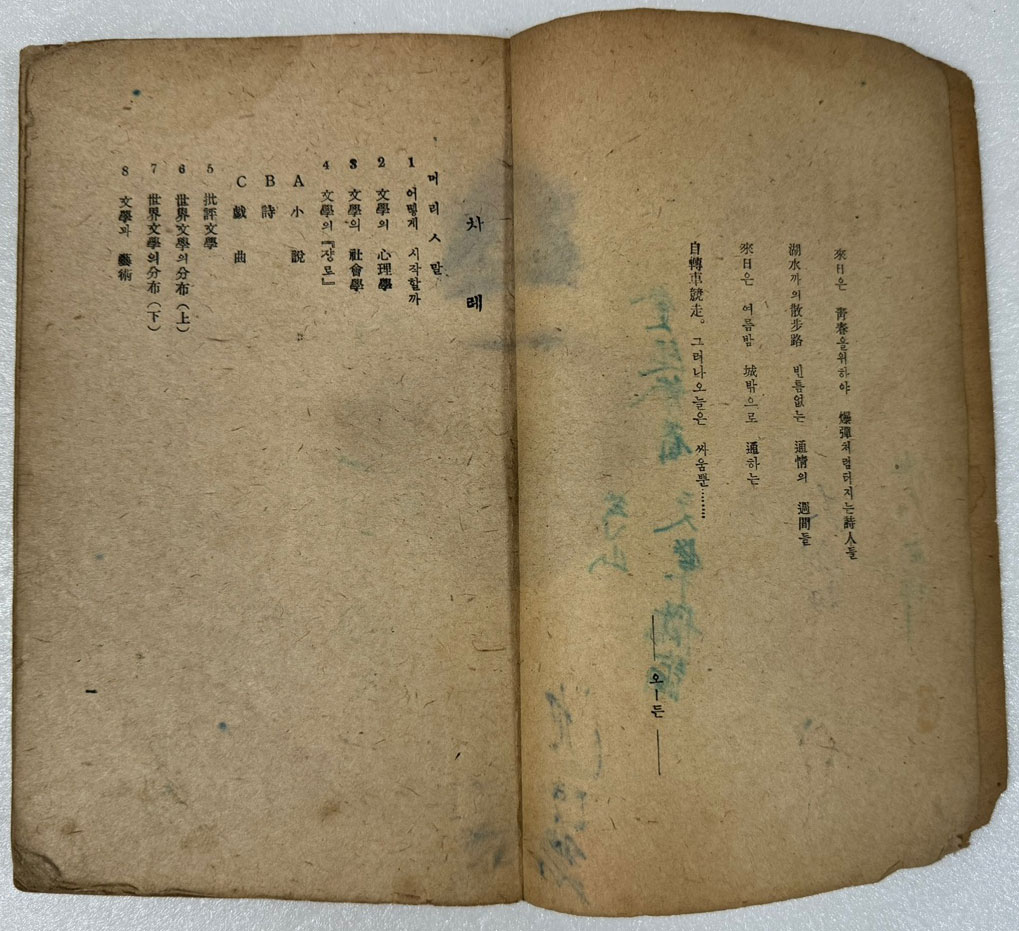 來日은 靑春을위하야 爆彈처럼터지는詩人들
湖水까의散步路 빈틈없는 通情의 週間들
來日은 여름밤 城밖으로 通하는
自轉車競走。그러나오늘은 싸움뿐………
── 오ー든 ──
차 례
머리ㅅ말
1 어떻게 시작할까
2 文學의 心理學
3 文學의 社會學
4 文學의『쟝르』
A 小 說
B 詩
C 戱 曲
5 批評文學
6 世界文學의分布(上)
7 世界文學의分布(下)
8 文學과 藝術